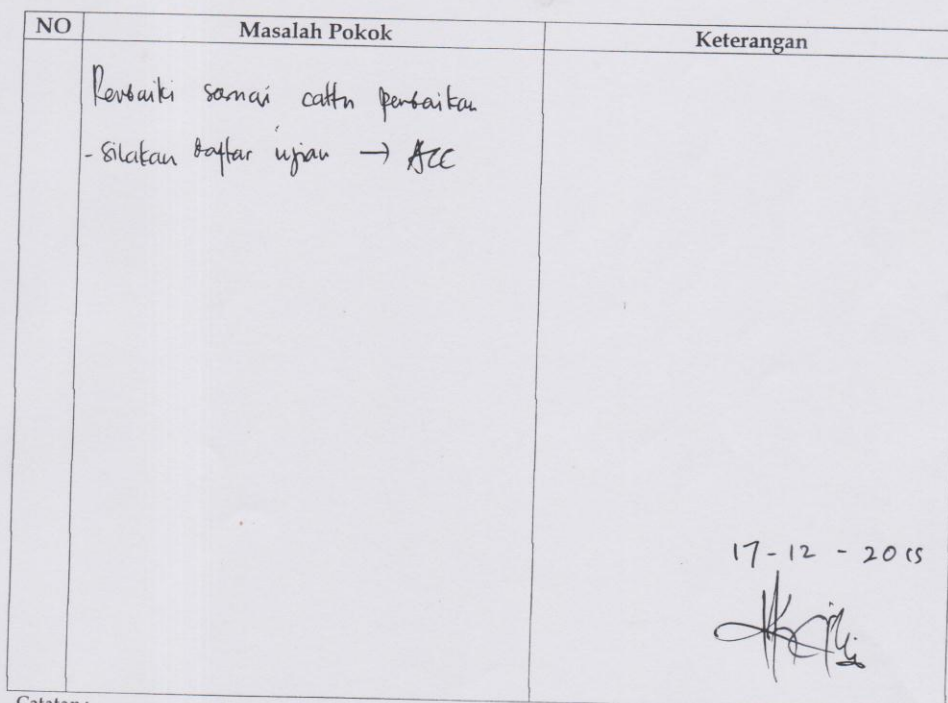 NO Masalah Pokok Keterangan
Perbaiki sesuai cattn perbaikan
- Silakan daftar ujian → ACC
17-12-2015
Catatan